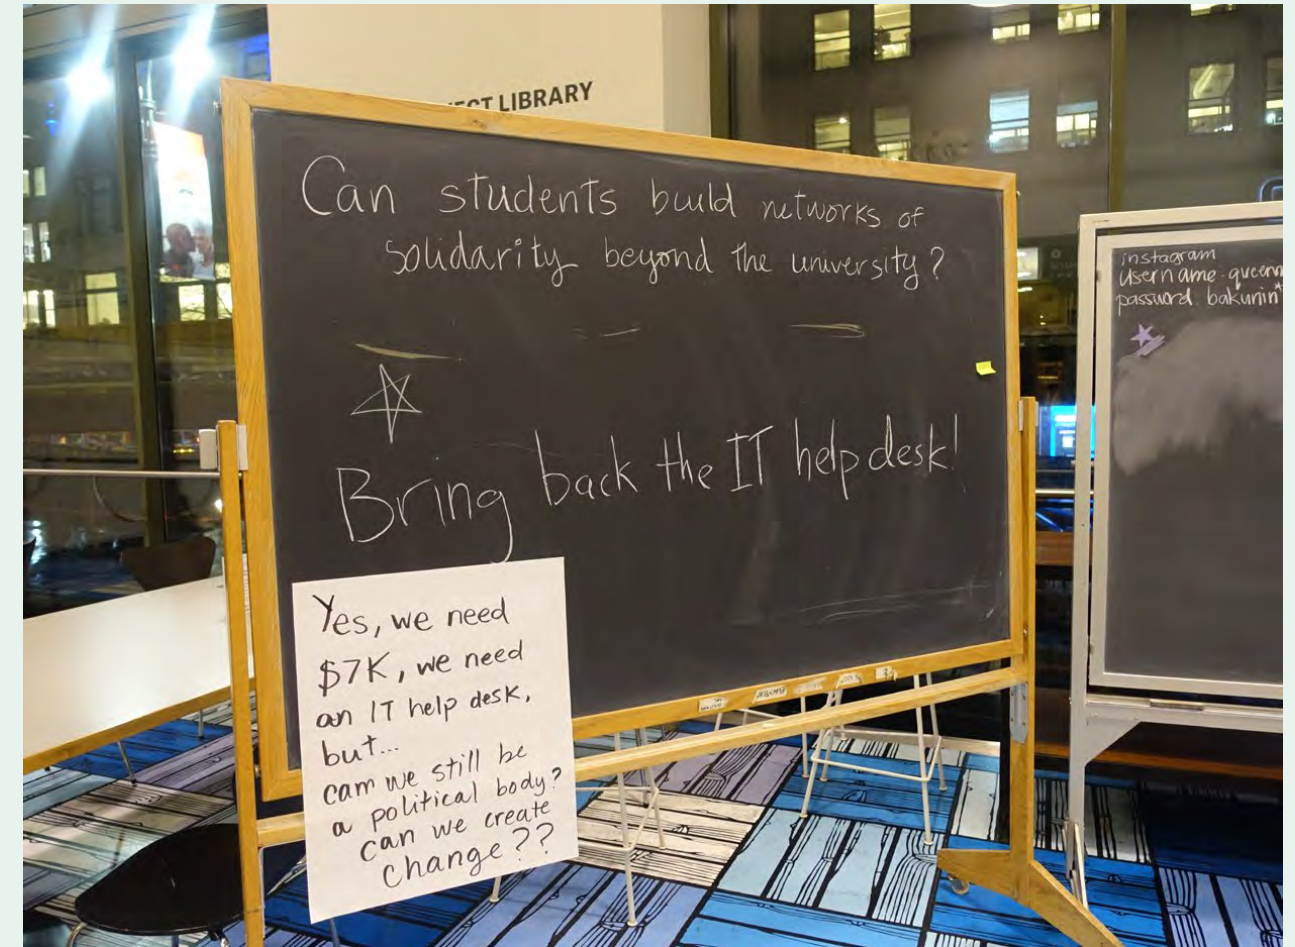 LIBRARY
Can students build networks of
solidarity beyond the university?
Bring back the IT help desk!
Yes, we need
$7K, we need
an IT help desk,
but...
can we still be
a political body?
can we create
change??
instagram
username
password bakunin